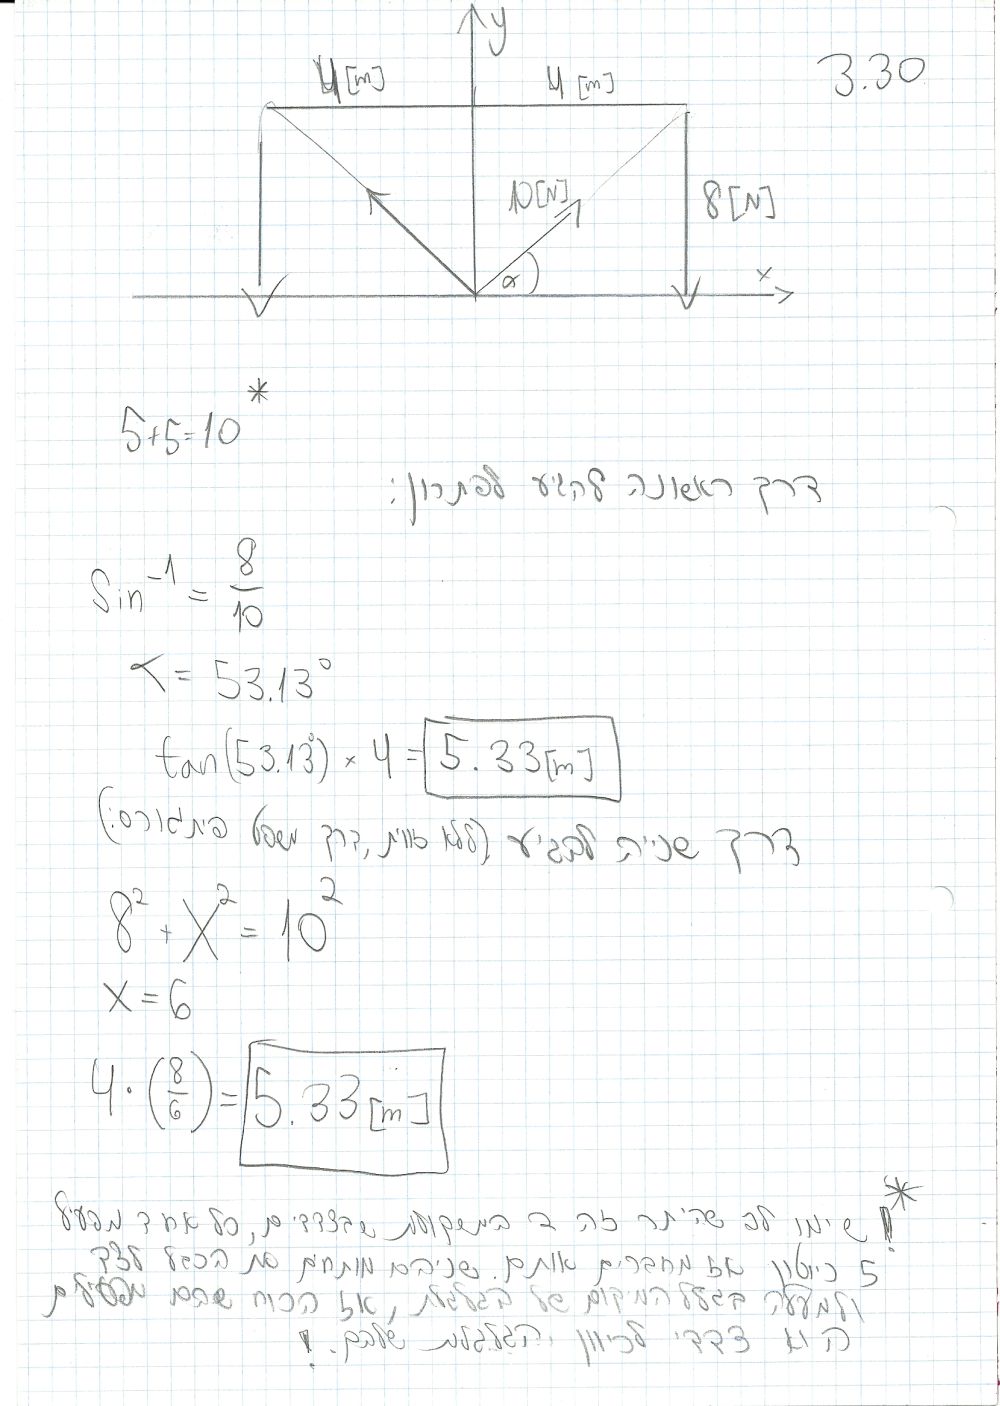 3.30
y
4[m] 4[m]
10[N] 8[N]
α x
5+5=10*
דרך ראשונה להגיע לפתרון:
Sin⁻¹ = 8/10
α = 53.13°
tan(53.13°) × 4 = 5.33[m]
דרך שנייה להגיע (ללא זווית, דרך משפט פיתגורס:)
8² + X² = 10²
x = 6
4·(8/6) = 5.33[m]
*! שימו לב שהיתר זה 2 המשקולות שבצדדים, כל אחד מפעיל
5 ניוטון אז מחברים אותם. שניהם מותחים את הכבל לצד
ולמעלה בגלל המיקום של הגלגלת, אז הכוח שהם מפעילים
הוא צדדי לכיוון הגלגלת שלהם.!